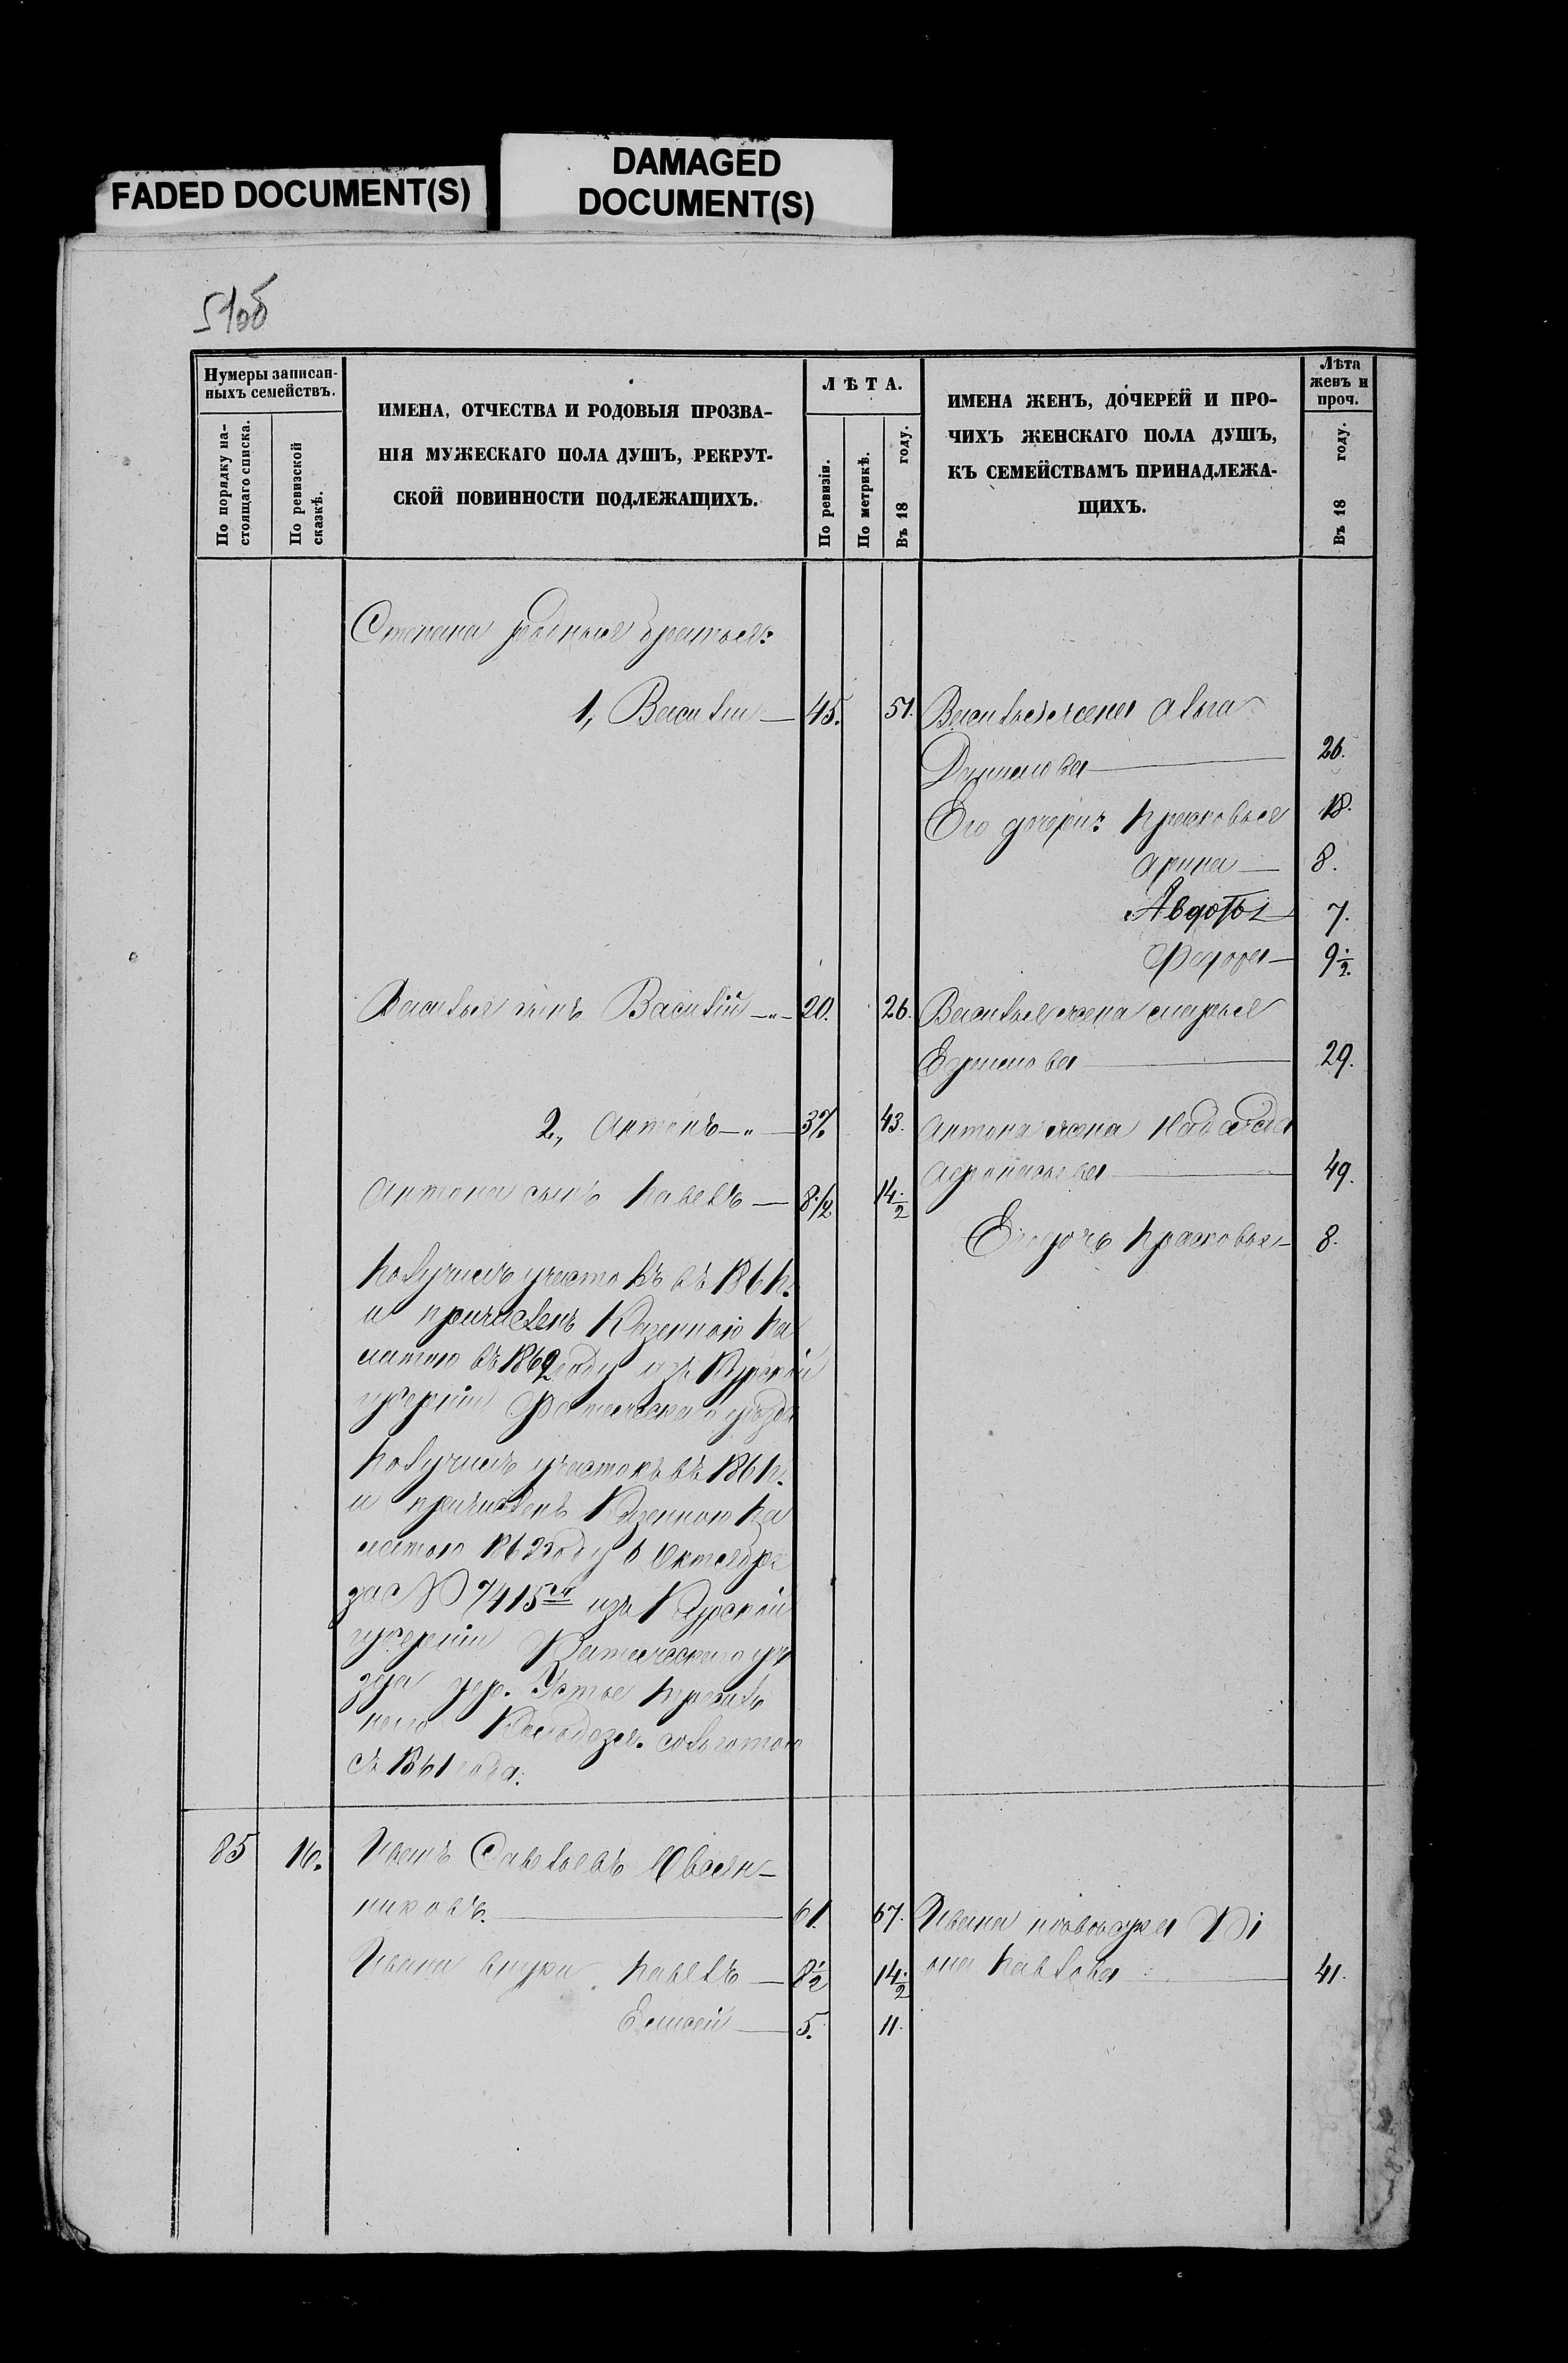 FADED DOCUMENT(S)
DAMAGED
DOCUMENT(S)
51об
Нумеры записан-
ныхъ семействъ.
По порядку на-
стоящаго списка.
По ревизской
сказкѣ.
ИМЕНА, ОТЧЕСТВА И РОДОВЫЯ ПРОЗВА-
НІЯ МУЖЕСКАГО ПОЛА ДУШЪ, РЕКРУТ-
СКОЙ ПОВИННОСТИ ПОДЛЕЖАЩИХЪ.
ЛѢТА.
По ревизіи.
По метрикѣ.
Въ 18 году.
ИМЕНА ЖЕНЪ, ДОЧЕРЕЙ И ПРО-
ЧИХЪ ЖЕНСКАГО ПОЛА ДУШЪ,
КЪ СЕМЕЙСТВАМЪ ПРИНАДЛЕЖА-
ЩИХЪ.
Лѣта
женъ и
проч.
Въ 18 году.
Степана родныя братья:
1, Василій — 45. 51. Василья жена
26.
Его дочери: Прасковья 18.
Арина — 8.
Авдотья 7.
Федора — 9 1/2.
Василья сынъ Василій — 20. 26. Василья жена Марья
Ефимова 29.
2, Антонъ — 37 43. Антона жена Надежда
Афонасьева 49.
Антона сынъ Павелъ — 8 1/2 14 1/2
Его дочь Прасковья — 8.
Получилъ участокъ въ 1861 г.
и причисленъ Казенною Па
латою въ 1862 году изъ Курской
губерніи Фатежскаго уѣзда
Получилъ участокъ въ 1861 г.
и причисленъ Казенною Па
латою 1862 году 6 Октября
за № 7415 изъ Курской
губерніи Фатежскаго уѣ
зда дер. Устье
Колодезя. со льготою
съ 1861 года.
85 16. Иванъ Савельевъ Овсян-
никовъ. 61. 67. Ивана
Ивана внуки Павелъ — 8 1/2 14 1/2 Павлова 41.
Елисей — 5. 11.